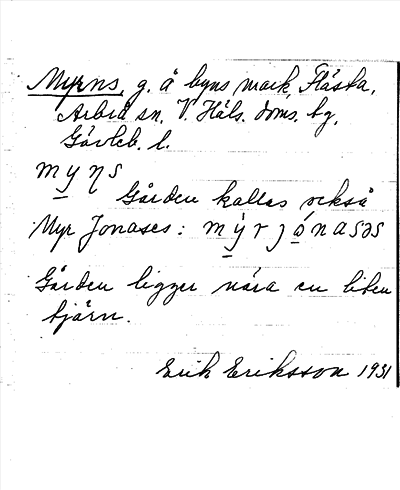 Myrns, g. å byns mark, Flästa,
Arbrå sn. V. Häls. doms. tg.
Gävleb. l.
myṇs
Gården kallas också
Myr Jonases: mỳrjónasəs
Gården ligger nära en liten
tjärn.
Erik Eriksson 1931